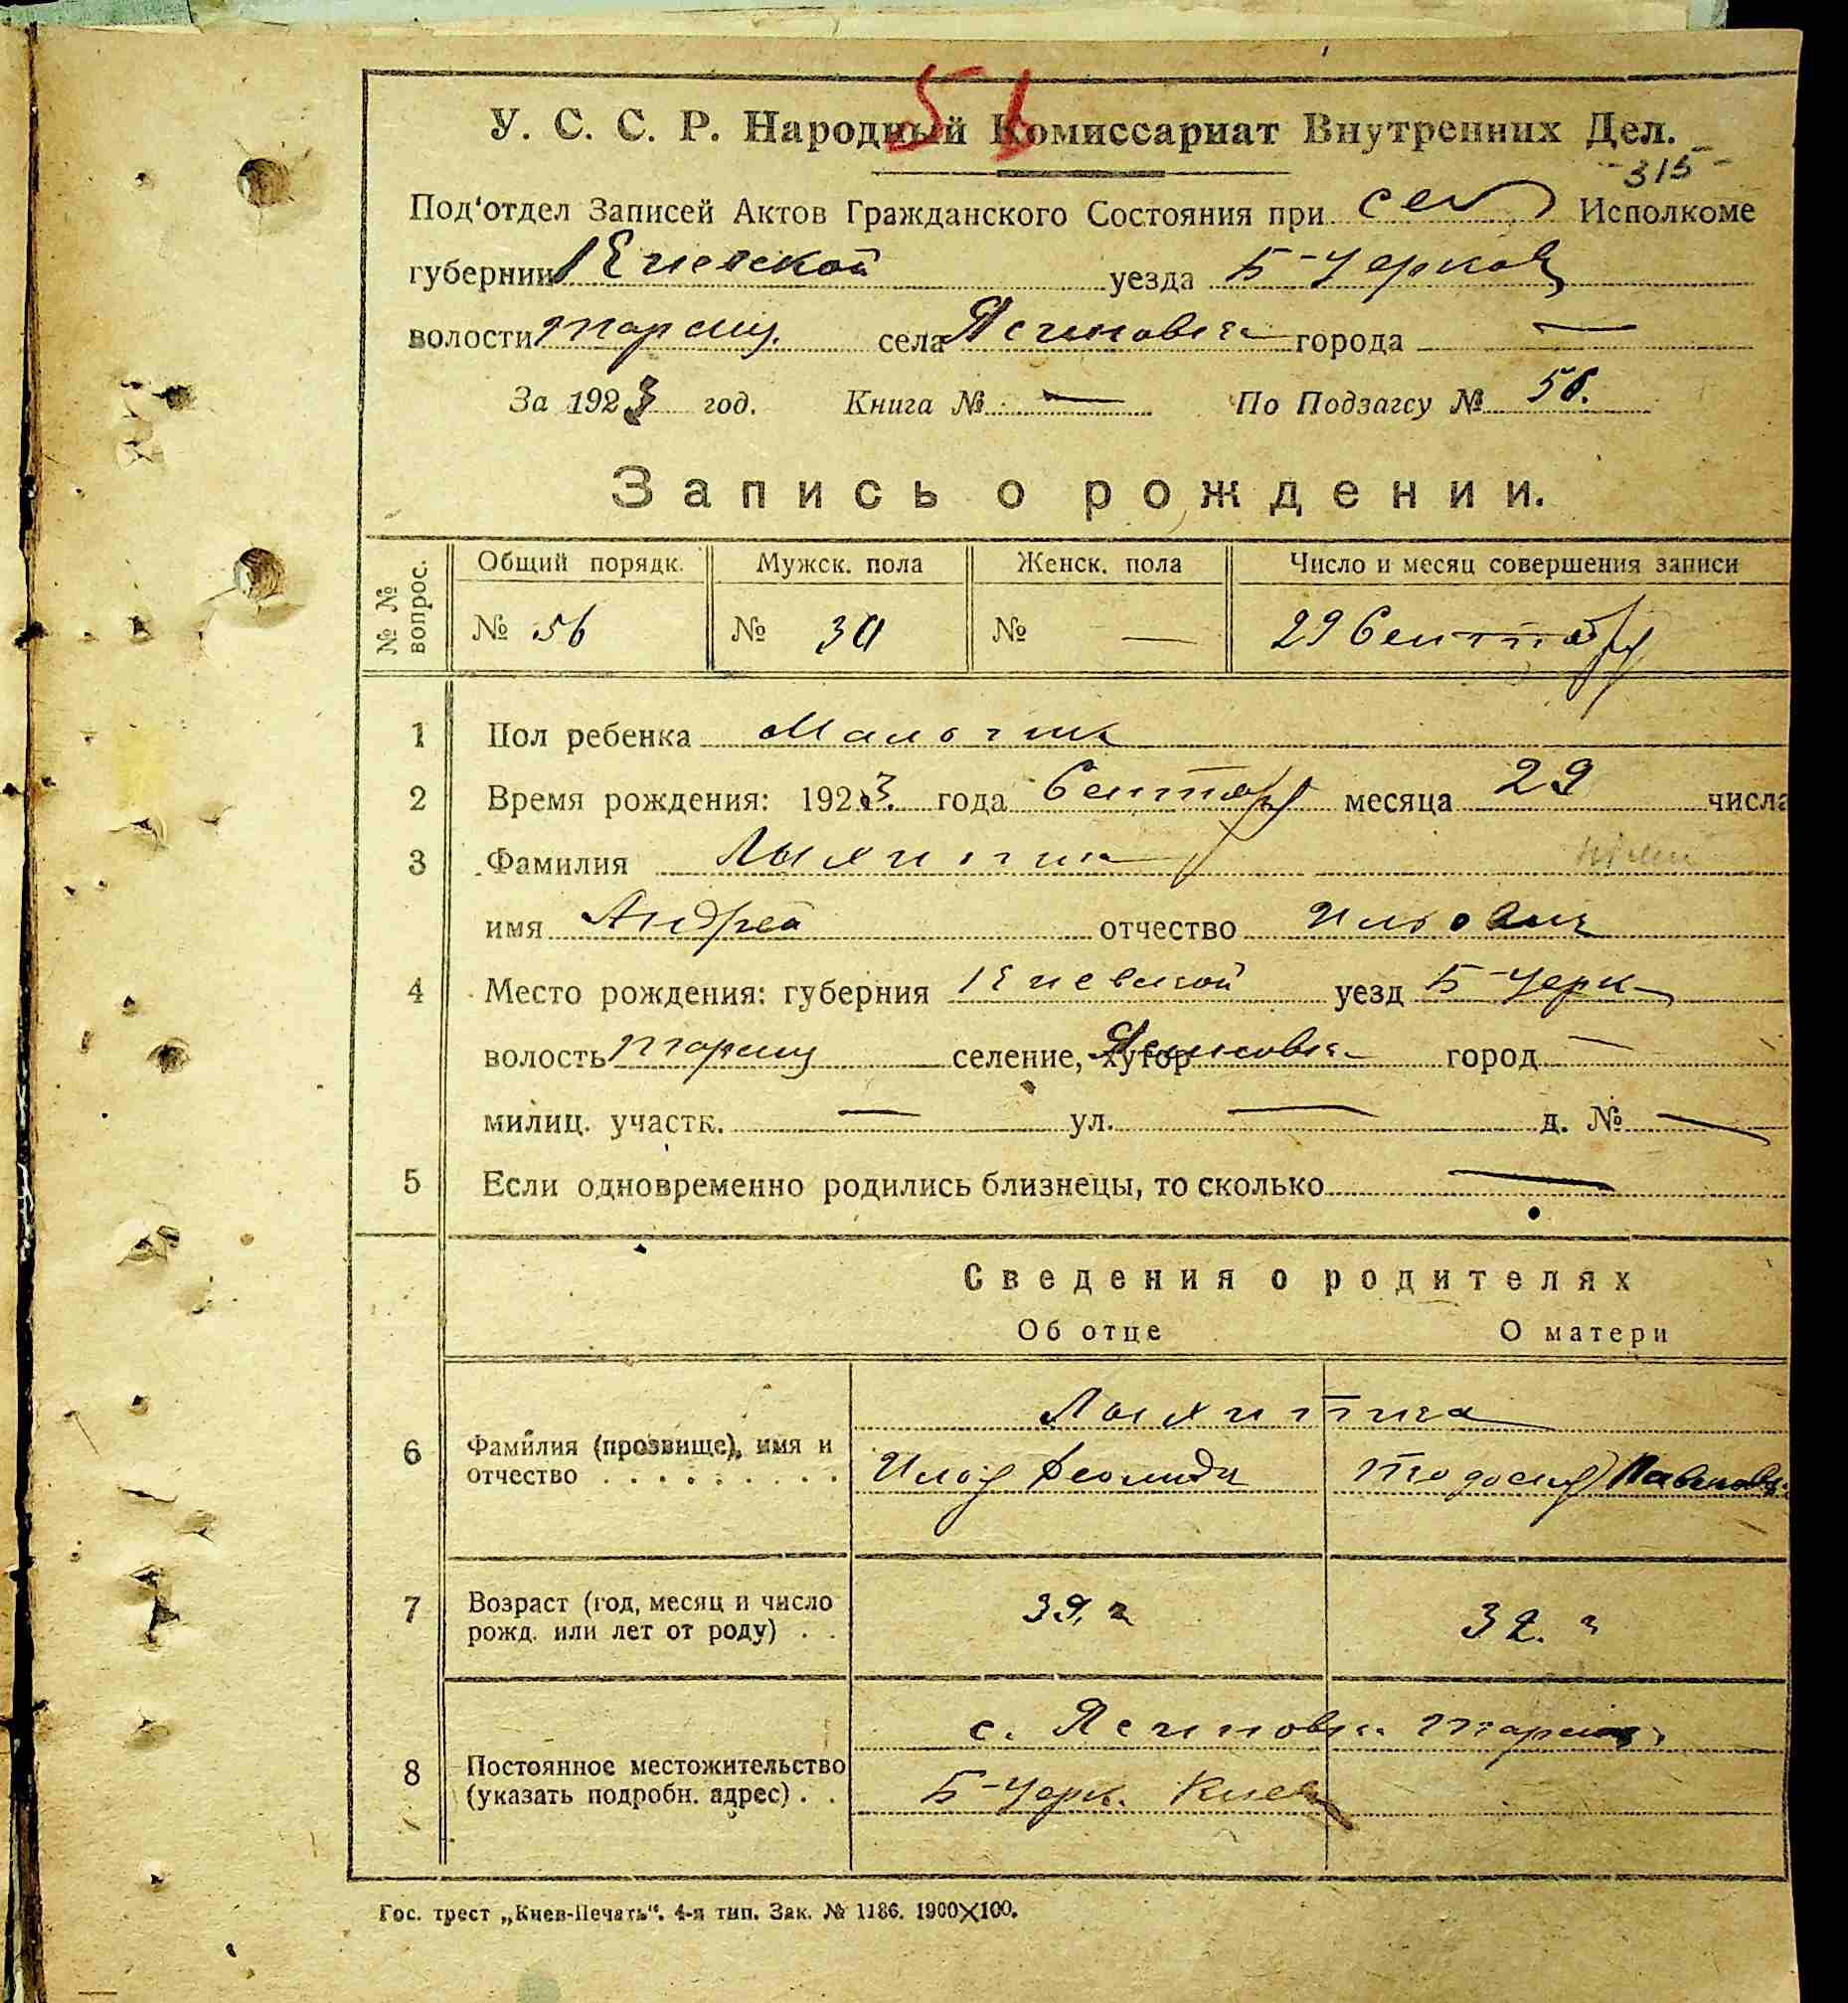 56
У. С. С. Р. Народный Комиссариат Внутренних Дел.
-315-
Под'отдел Записей Актов Гражданского Состояния при сел Исполкоме
губернии Киевской уезда Б-Церков
волости таращ. села Ясиновка города —
За 1923 год. Книга № — По Подзагсу № 56.
Запись о рождении.
№ № вопрос. Общий порядк. Мужск. пола Женск. пола Число и месяц совершения записи
№ 56 № 30 № — 29 Сентября
1 Пол ребенка Мальчик
2 Время рождения: 1923. года Сентября месяца 29 числа
3 Фамилия
имя Андрей отчество Ильович
4 Место рождения: губерния Киевской уезд Б-Церк
волость таращ селение, хутор Ясиновка город —
милиц. участк. — ул. — д. № —
5 Если одновременно родились близнецы, то сколько —
Сведения о родителях
Об отце О матери
6 Фамилия (прозвище), имя и отчество . . . . . . . . .
Илья Тодосия Павловна
7 Возраст (год, месяц и число рожд. или лет от роду) . .
39. г 32. г
8 Постоянное местожительство (указать подробн. адрес) . .
с. Ясиновка таращ.
Б-Церк. Киев
Гос. трест „Киев-Печать“. 4-я тип. Зак. № 1186. 1900×100.